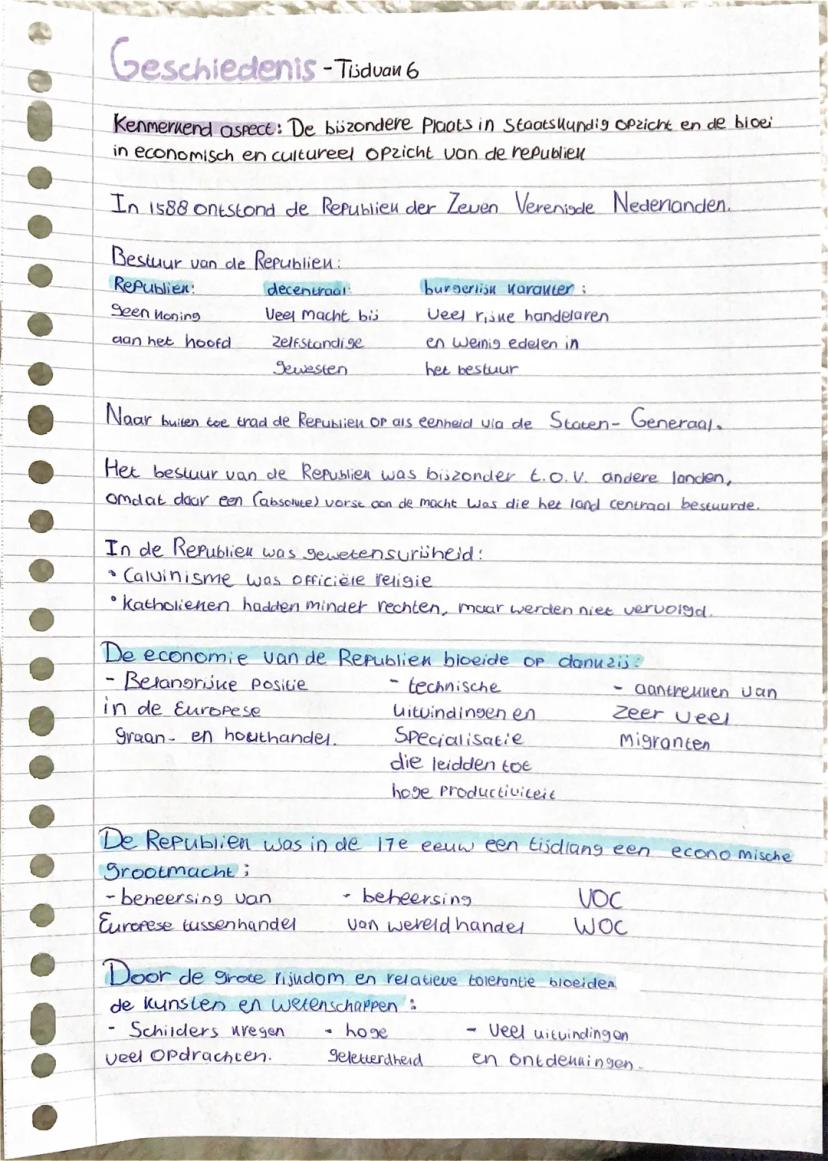 Geschiedenis - Tijdvak 6
Kenmerkend aspect: De bijzondere plaats in staatskundig opzicht en de bloei
in economisch en cultureel opzicht van de republiek
In 1588 ontstond de Republiek der Zeven Verenigde Nederlanden.
Bestuur van de Republiek:
Republiek: decentraal: burgerlijk karakter:
geen koning veel macht bij veel rijke handelaren
aan het hoofd zelfstandige en weinig edelen in
gewesten het bestuur
Naar buiten toe trad de Republiek op als eenheid via de Staten-Generaal.
Het bestuur van de Republiek was bijzonder t.o.v. andere landen,
omdat daar een (absolute) vorst aan de macht was die het land centraal bestuurde.
In de Republiek was gewetensvrijheid:
• Calvinisme was officiële religie
• Katholieken hadden minder rechten, maar werden niet vervolgd.
De economie van de Republiek bloeide op dankzij:
- Belangrijke positie - technische - aantrekken van
in de Europese uitvindingen en zeer veel
graan- en houthandel. specialisatie migranten
die leidden tot
hoge productiviteit
De Republiek was in de 17e eeuw een tijdlang een economische
grootmacht:
- beheersing van - beheersing VOC
Europese tussenhandel van wereldhandel WOC
Door de grote rijkdom en relatieve tolerantie bloeiden
de kunsten en wetenschappen:
- Schilders kregen - hoge - veel uitvindingen
veel opdrachten. geletterdheid en ontdekkingen.